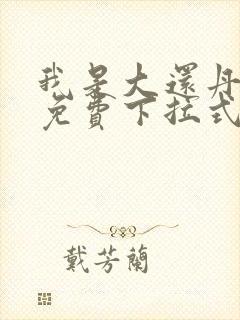 我是大還丹
免費下拉式
戴芳蘭